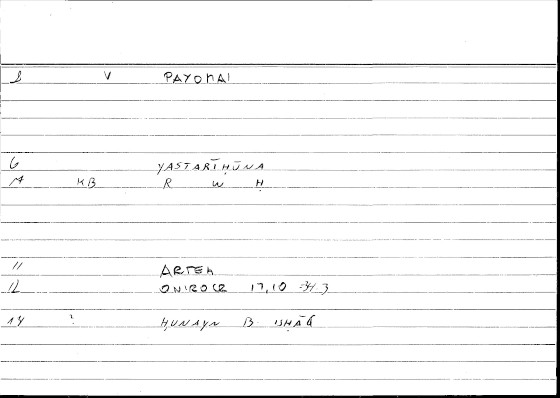 V PAYOMAI
6 YASTARĪḤŪNA
KB R W Ḥ
11 ARTEM
12 ONIROCR 17,10
14 ? ḤUNAYN B. ISḤĀQ